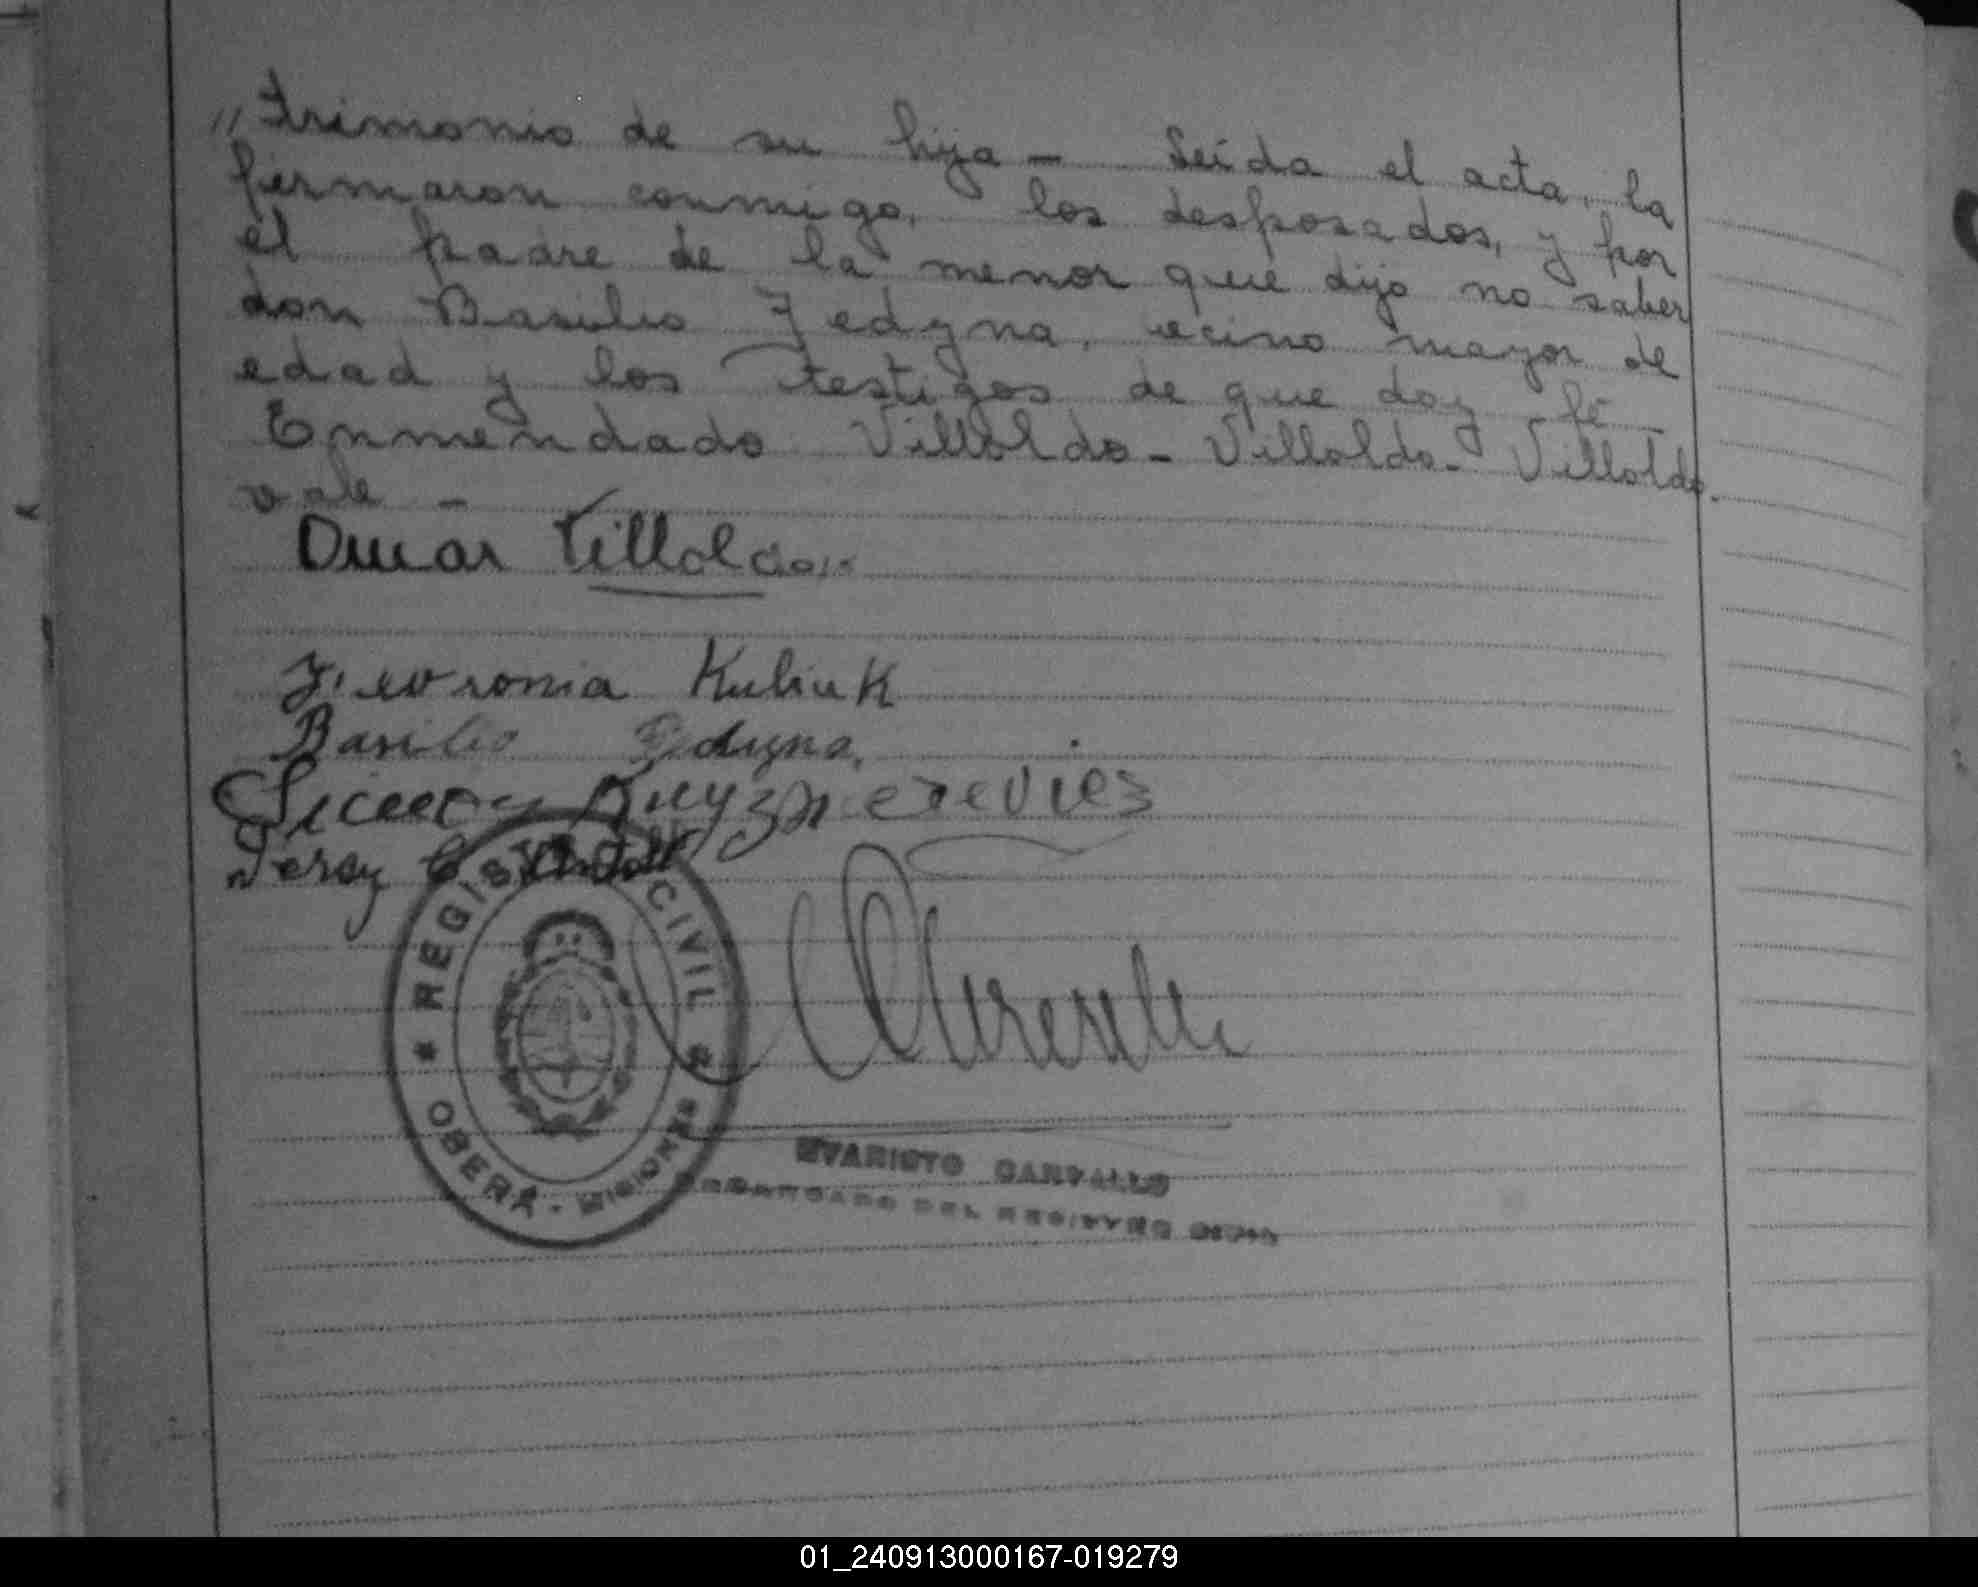 „trimonio de su hija – Leída el acta, la
firmaron conmigo, los desposados, y por
el padre de la menor que dijo no saber
don Basilio Jedyna, vecino mayor de
edad y los testigos de que doy fé –
Enmendado Villoldo – Villoldo – Villoldo.
vale –
Omar Villoldo
Kubiuk
Basilio Jedyna,
REGISTRO CIVIL
OBERÁ - MISIONES
EVARISTO CARVALLO
ENCARGADO DEL REGISTRO CIVIL
01_240913000167-019279